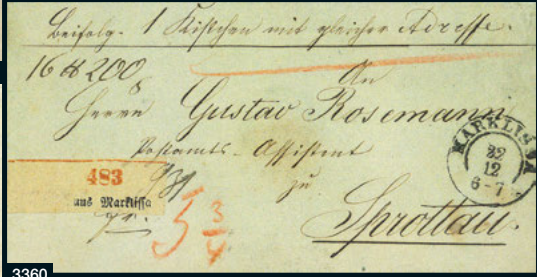 Beifolg. 1 Kistchen mit gleicher Adresse.
16 ℔ 200
An
Herrn Gustav Rosemann
Postamts-Assistent
zu
Sprottau.
MARKLISSA
22
12
6-7
483
aus Marklissa
5 3/4
3360